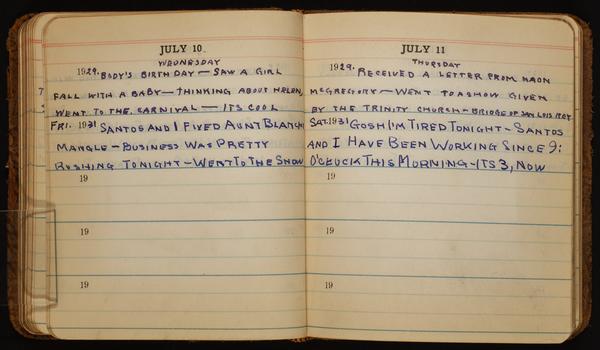 JULY 10.
WEDNESDAY
1929. BODY'S BIRTHDAY — SAW A GIRL
FALL WITH A BABY — THINKING ABOUT HELEN,
WENT TO THE CARNIVAL — ITS COOL
FRI. 1931 SANTOS AND I FIXED AUNT BLANCH
MANGLE — BUSINESS WAS PRETTY
RUSHING TONIGHT — WENT TO THE SHOW
19
19
19
JULY 11
THURSDAY
1929. RECEIVED A LETTER FROM NAON
McGREGORY — WENT TO A SHOW GIVEN
BY THE TRINITY CHURCH — BRIDGE OF SAN LOIS REY
SAT. 1931 GOSH I'M TIRED TONIGHT — SANTOS
AND I HAVE BEEN WORKING SINCE 9:
O'CLUCK THIS MORNING — ITS 3, NOW
19
19
19